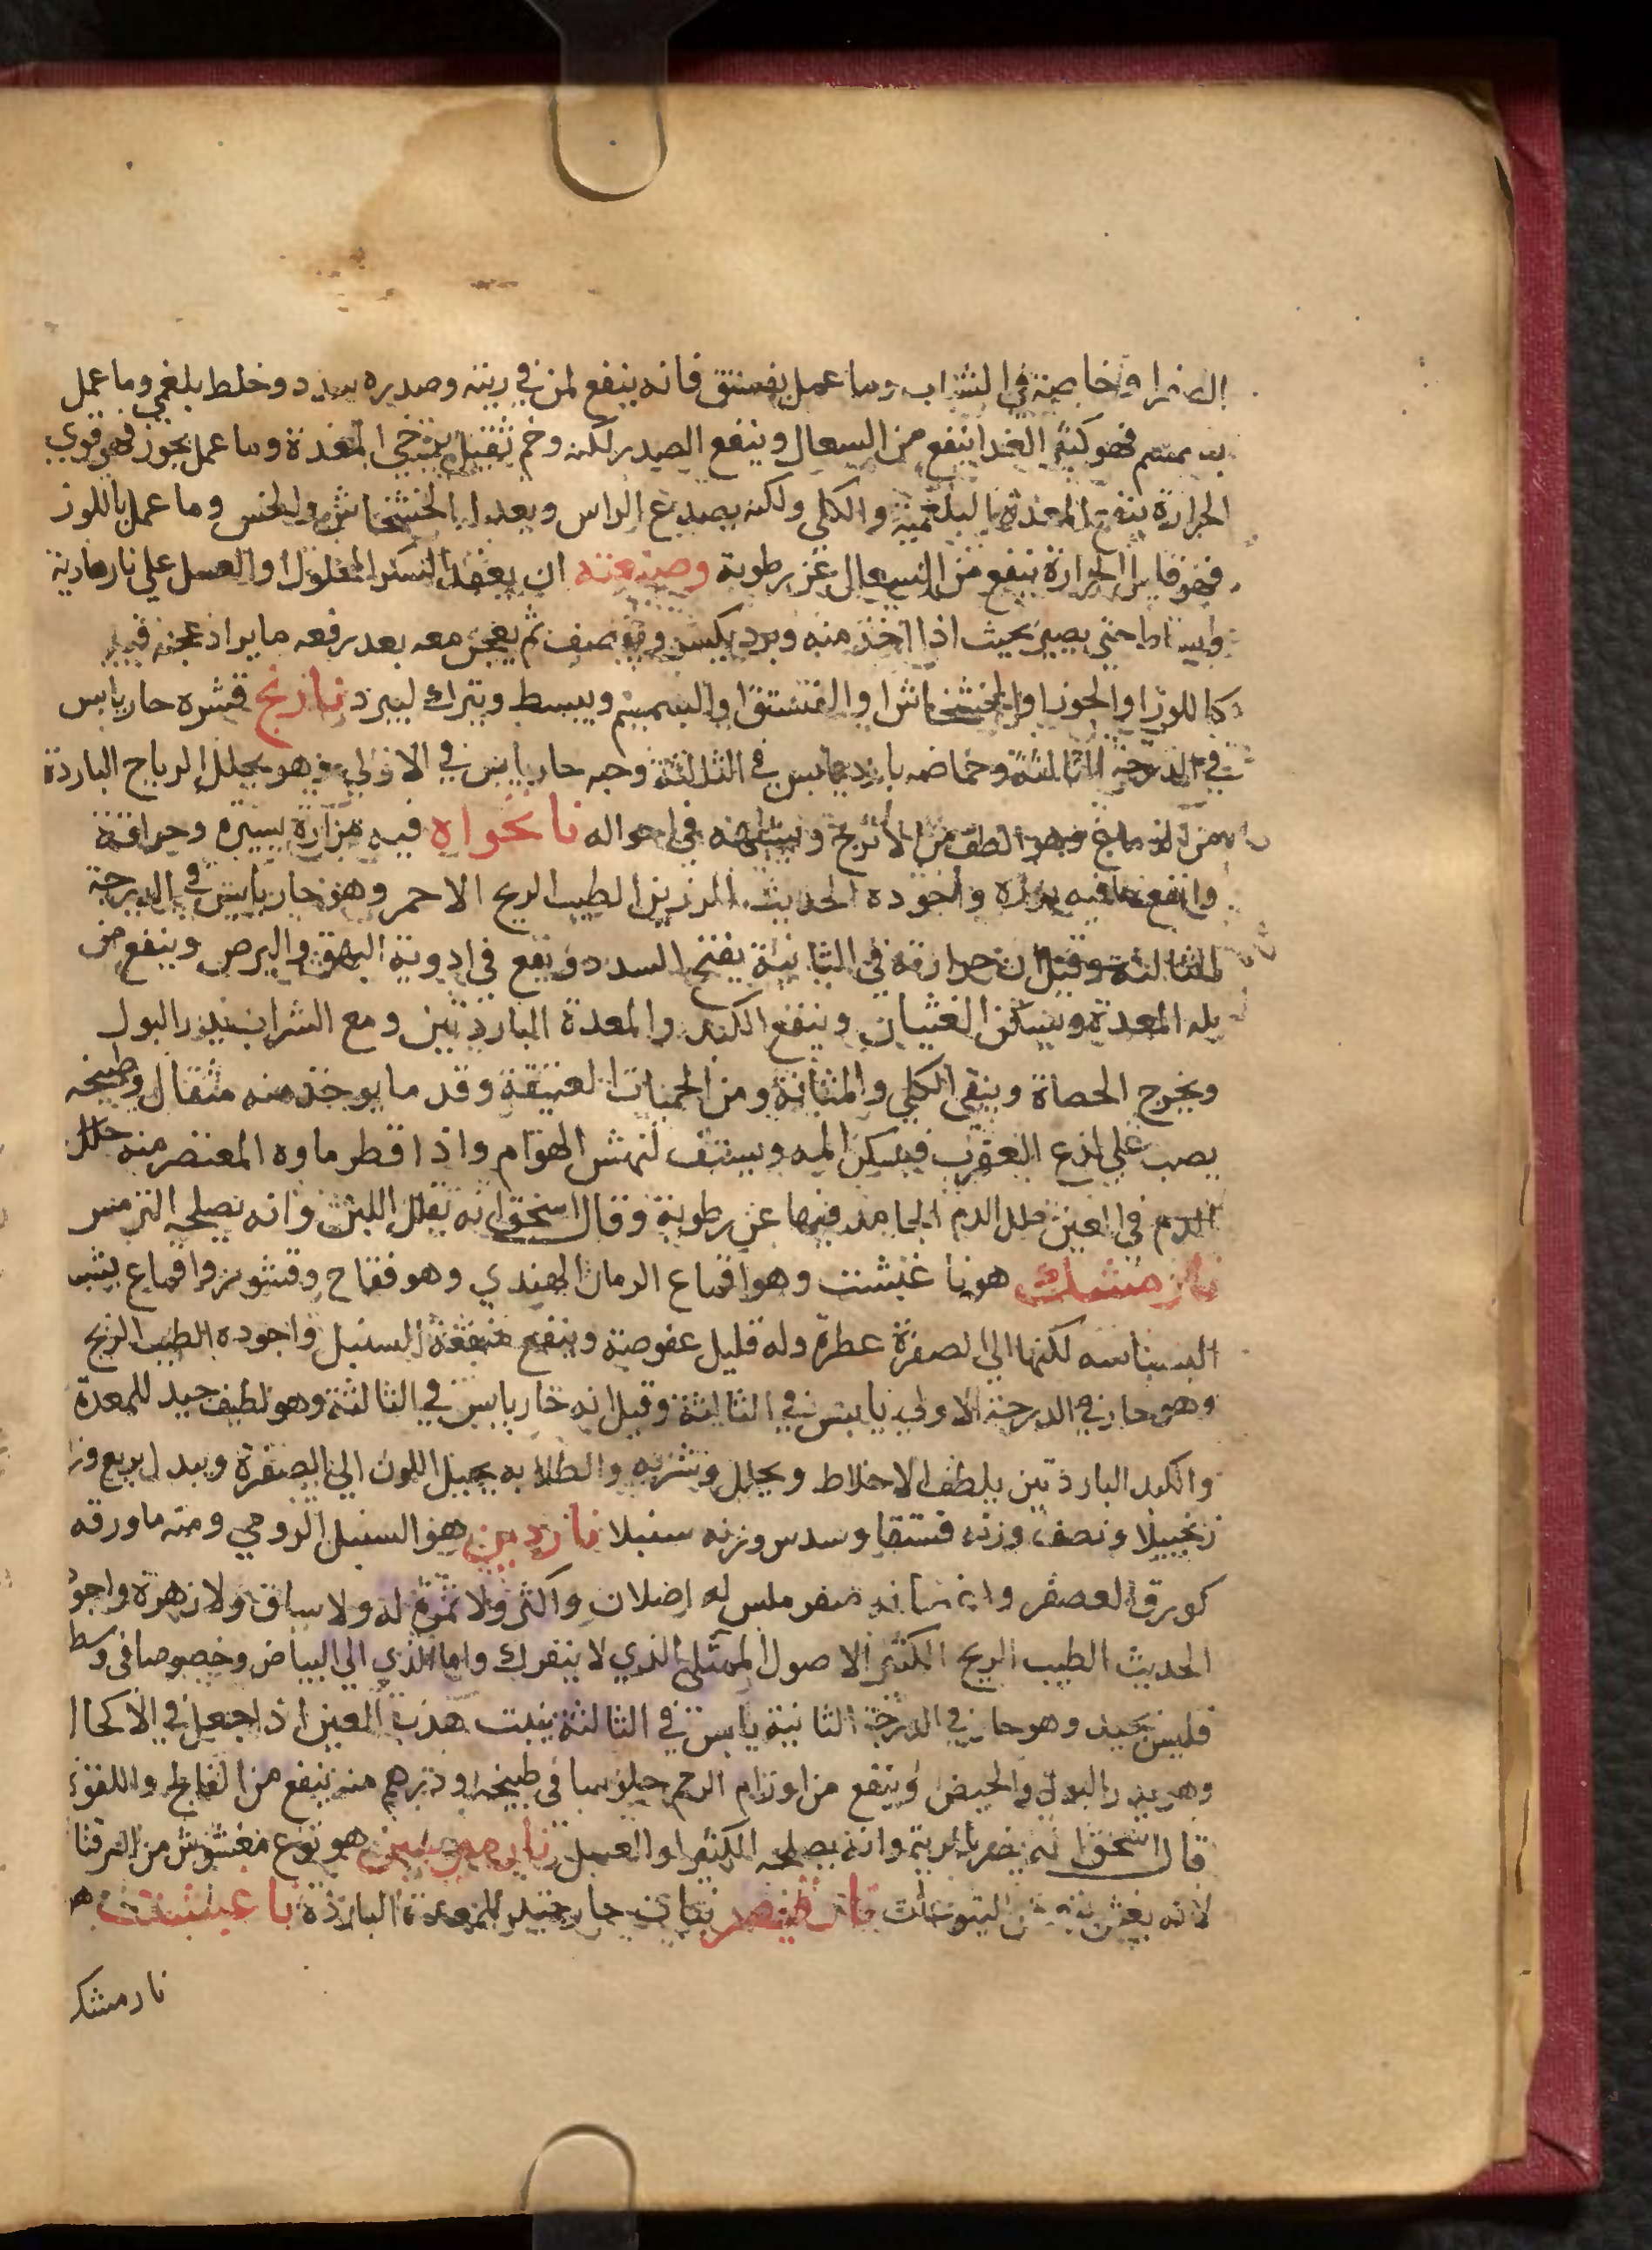 الصفرا وخاصة في الشراب وما عمل بفستق فانه ينفع لمن في ريته وصدره سدد وخلط بلغمي وما عمل
بسمسم فهو كثير الغذا ينفع من السعال وينفع الصدر لكنه وخم ثقيل يرخي المعدة وما عمل بجوز فهو قوي
الحرارة ينفع المعدة البلغمية والكلى ولكنه يصدع الراس ويعدل الخشخاش والخس وما عمل باللوز
فهو فاتر الحرارة ينفع من السعال عن رطوبة وصنعته ان يعقد السكر المحلول او العسل علي نار هادية
حتى يصير بحيث اذا اخذ منه وبرد يكسر ثم يعجن معه بعد رفعه ما يراد عجنه فيه
كاللوز او الجوز او الخشخاش او الفستق او السمسم ويبسط ويترك ليبرد نارنج قشره حار يابس
في الدرجة الثالثة وحماضه بارد يابس في الثالثة وحبه حار يابس في الاولي وهو يحلل الرياح الباردة
من الدماغ وهو الطف من الاترج في احواله نانخواه فيه مرارة يسيرة وحرافة
وانفع ما فيه بزره واجوده الحديث الرزين الطيب الريح الاحمر وهو حار يابس في الدرجة
الثالثة وقيل ان حرارته في الثانية يفتح السدد ويقع في ادوية البهق والبرص وينفع من
بله المعدة ويسكن الغثيان وينفع الكبد والمعدة الباردتين ومع الشراب يدر البول
ويخرج الحصاة وينقي الكلي والمثانة ومن الحميات العتيقة وقدر ما يوخذ منه مثقال وطبيخه
يصب علي لذع العقرب فيسكن المه ويستف لنهش الهوام واذا قطر ماوه المعتصر منه حلل
الدم في العين حلل الدم الجامد فيها عن رطوبة وقال اسحق انه يقلل اللبن وانه يصلحه الترمس
نارمشك هو ناغبشت وهو اقماع الرمان الهندي وهو فقاح وقشور واقماع يشبه
البسباسه لكنها الي الصفرة عطرة وله قليل عفوصة وينفع منفعة السنبل واجوده الطيب الريح
وهو حار في الدرجة الاولي يابس في الثالثة وقيل انه حار يابس في الثالثة وهو لطيف جيد للمعدة
والكبد الباردتين يلطف الاخلاط ويحلل وشربه والطلا به يحيل اللون الي الصفرة وبدل بربع وز
زنجبيلا ونصف وزنه فستقا وسدس وزنه سنبلا ناردين هو السنبل الرومي ومنه ما ورقه
كورق العصفر واغصانه صفر ملس له اصلان واكثر ولا ثمرة له ولا ساق ولا زهرة واجو
الحديث الطيب الريح الكثير الاصول الممتلي الذي لا ينفرك واما الذي الي البياض وخصوصا في وسط
فليس بجيد وهو حار في الدرجة الثانية يابس في الثالثة ينبت هدب العين اذا جعل في الاكحال
وهو يدر البول والحيض وينفع من اورام الرحم جلوسا في طبيخه ودرهم منه ينفع من الفالج واللقوة
قال اسحق انه يضر بالرية وانه يصلحه الكثيرا والعسل هو نوع مغشوش من المرقنا
لانه يغش اليتوعات نار قيصر نبات حار جيد للمعدة الباردة ناغبشت هو
نارمشك